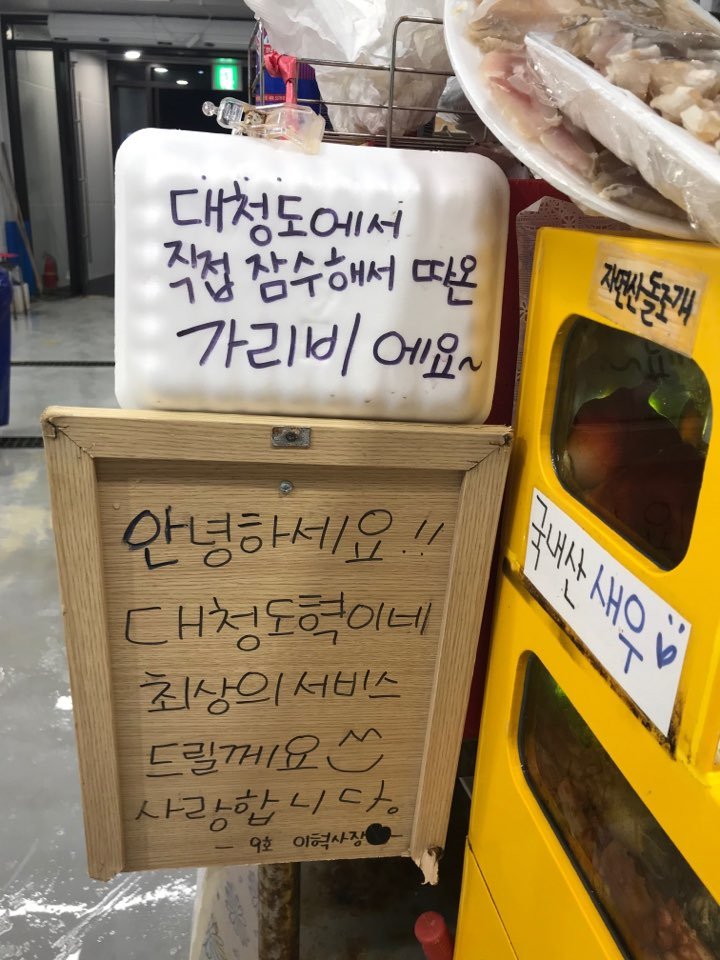 대청도에서
직접 잠수해서 따온
가리비에요~
안녕하세요!!
대청도혁이네
최상의서비스
드릴께요
사랑합니다.
- 9호 이혁사장 -
자연산돌조개
국내산 새우